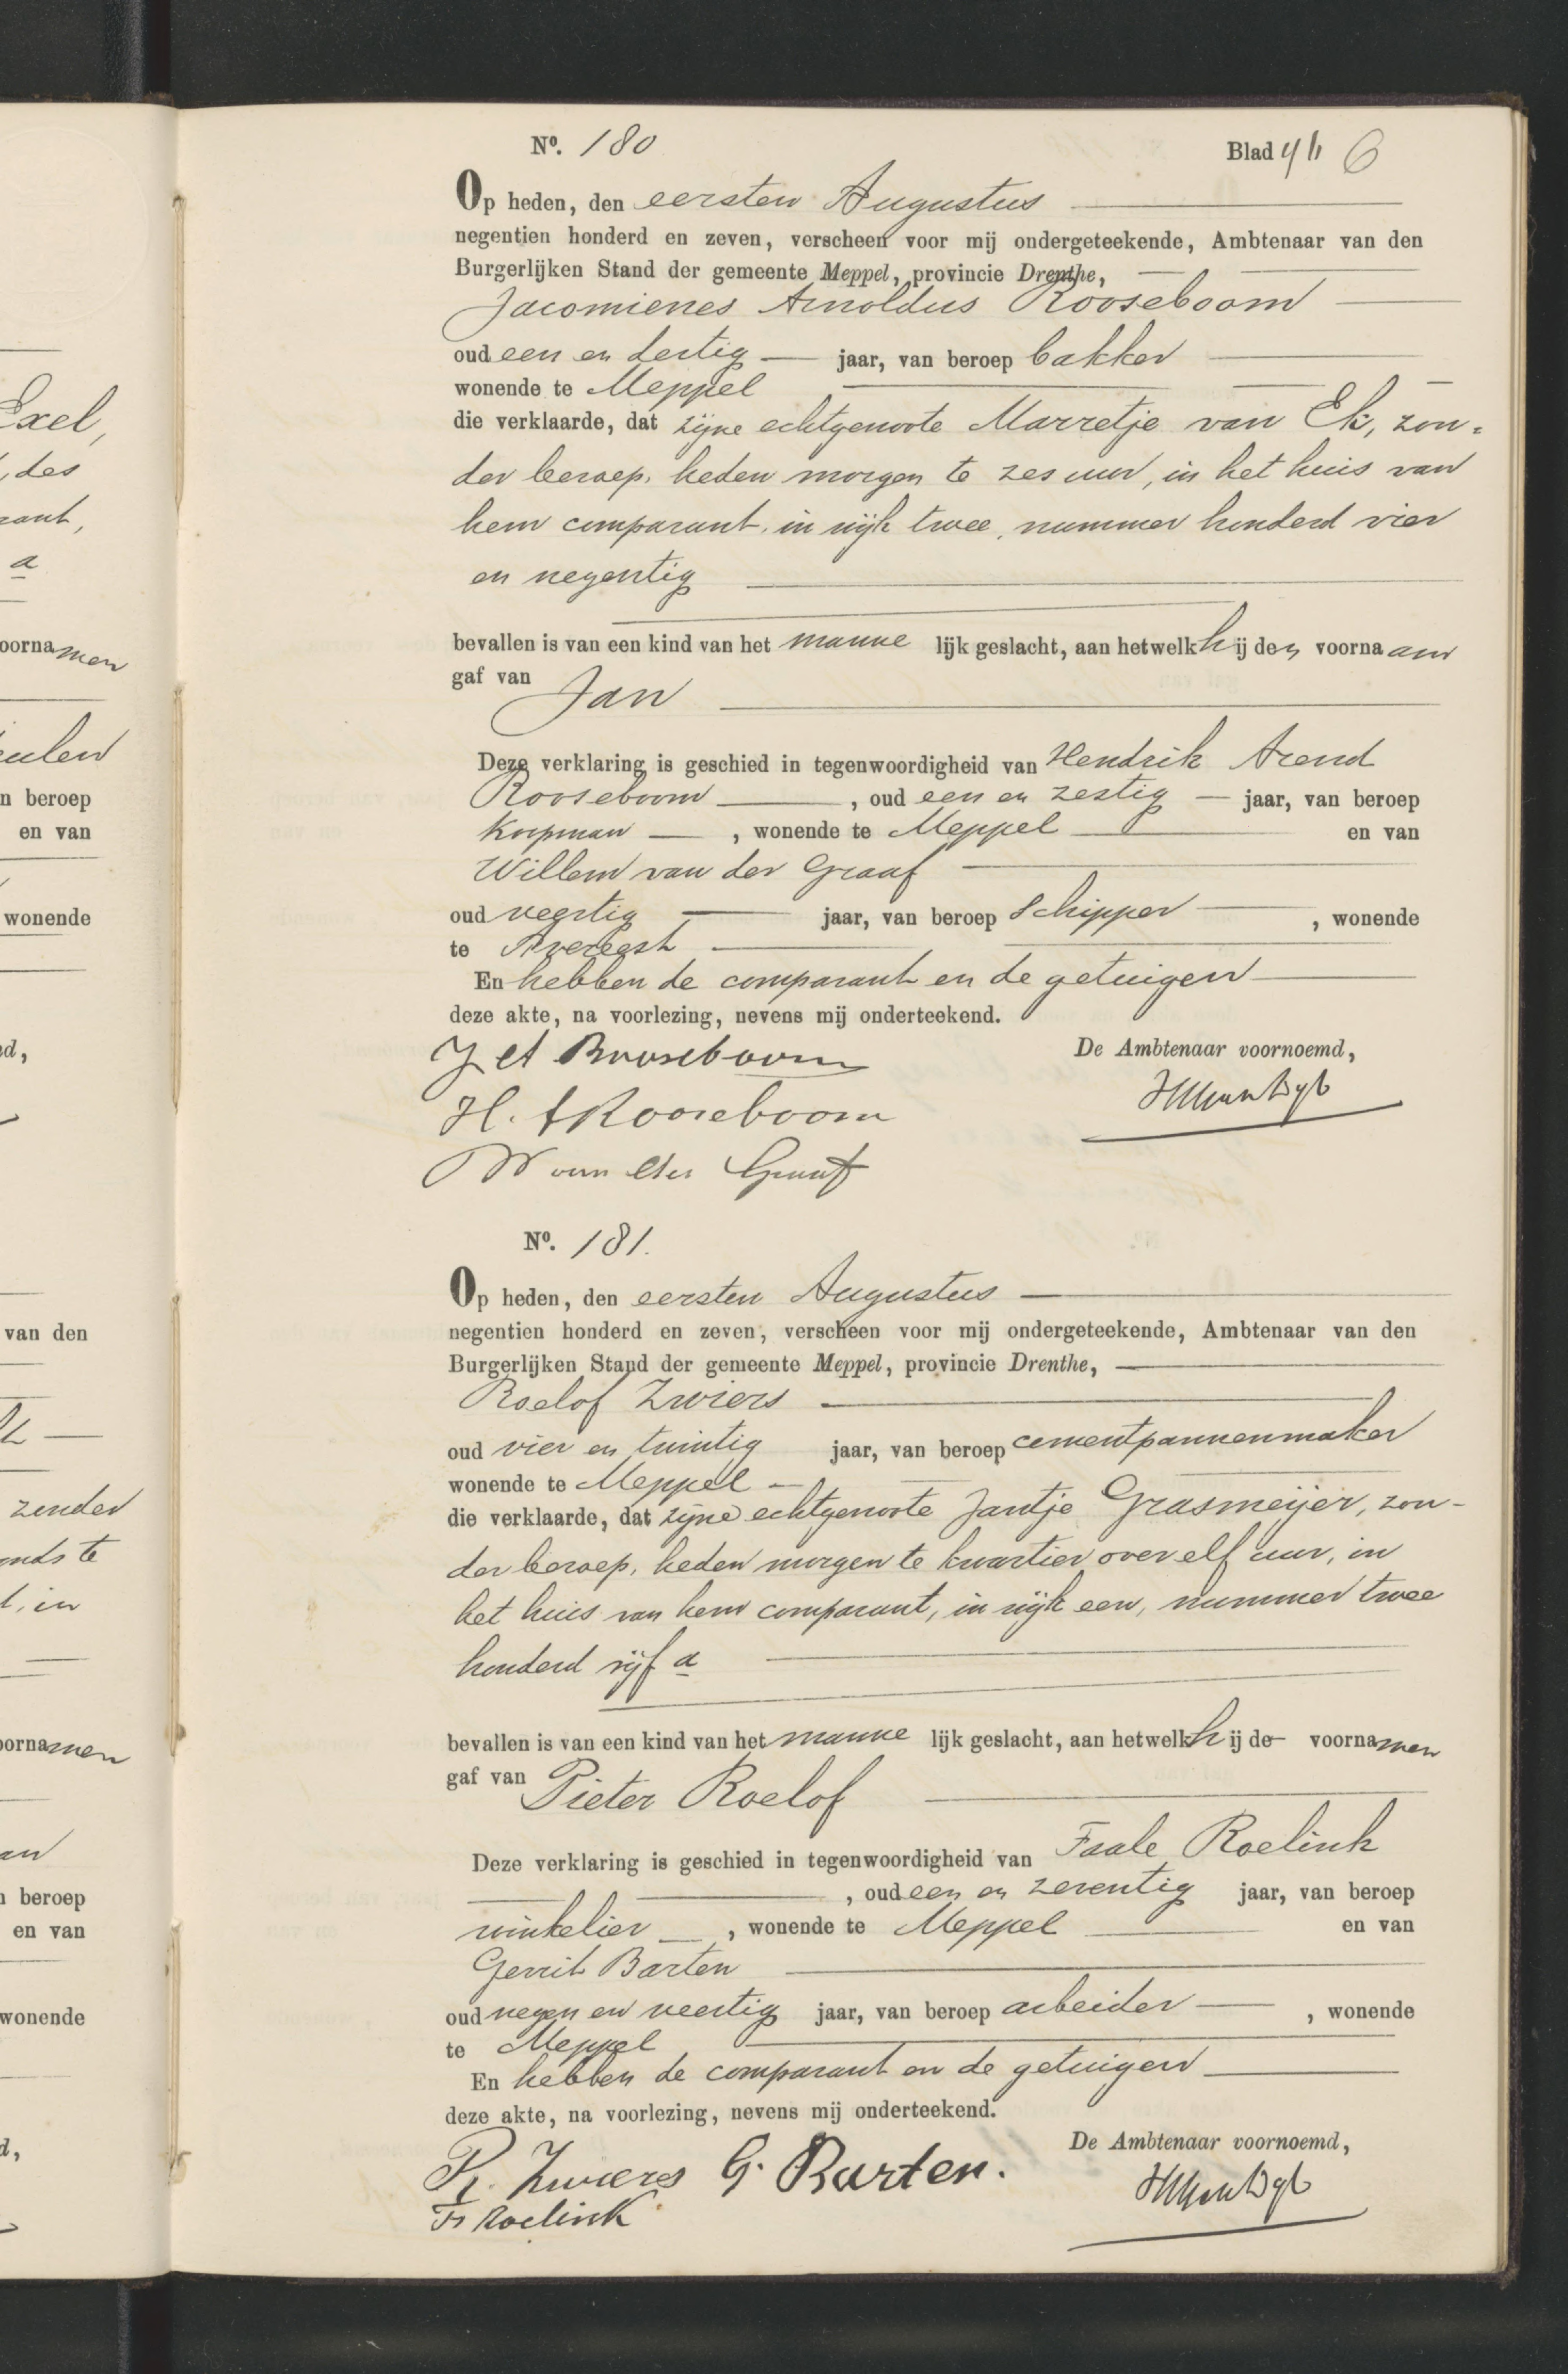 Exel,
des
a
voornamen
n beroep
en van
wonende
van den
zonder
voornamen
beroep
en van
wonende
Nº. 180
Blad 46
Op heden, den eersten Augustus
negentien honderd en zeven, verscheen voor mij ondergeteekende, Ambtenaar van den
Burgerlijken Stand der gemeente Meppel, provincie Drenthe,
Jacomienes Arnoldus Rooseboom
oud een en dertig jaar, van beroep bakker
wonende te Meppel
die verklaarde, dat zijne echtgenoote Marretje van Ek, zon=
der beroep, heden morgen te zes uur, in het huis van
hem comparant, in wijk twee, nummer honderd vier
en negentig
bevallen is van een kind van het manne lijk geslacht, aan hetwelk hij den voornaam
gaf van Jan
Deze verklaring is geschied in tegenwoordigheid van Hendrik Arend
Rooseboom, oud een en zestig jaar, van beroep
Koopman, wonende te Meppel en van
Willem van der Graaf
oud veertig jaar, van beroep Schipper, wonende
te Avereest
En hebben de comparant en de getuigen
deze akte, na voorlezing, nevens mij onderteekend.
De Ambtenaar voornoemd,
J A Rooseboom
H. A Rooseboom
W van der Graaf
Nº. 181.
Op heden, den eersten Augustus
negentien honderd en zeven, verscheen voor mij ondergeteekende, Ambtenaar van den
Burgerlijken Stand der gemeente Meppel, provincie Drenthe,
Roelof Zwiers
oud vier en twintig jaar, van beroep cementpannenmaker
wonende te Meppel
die verklaarde, dat zijne echtgenoote Jantje Grasmeijer, zon-
der beroep, heden morgen te kwartier over elf uur, in
het huis van hem comparant, in wijk een, nummer twee
honderd vijf a
bevallen is van een kind van het manne lijk geslacht, aan hetwelk hij de voornamen
gaf van Pieter Roelof
Deze verklaring is geschied in tegenwoordigheid van Faale Roelink
, oud een en zeventig jaar, van beroep
winkelier, wonende te Meppel en van
Gerrit Barten
oud negen en veertig jaar, van beroep arbeider, wonende
te Meppel
En hebben de comparant en de getuigen
deze akte, na voorlezing, nevens mij onderteekend.
De Ambtenaar voornoemd,
R. Zwiers G. Barten.
F Roelink